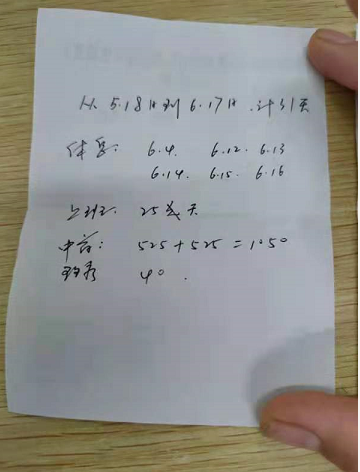 从 5.18日到 6.17日.计31天
休息: 6.4. 6.12. 6.13
6.14. 6.15. 6.16
上班: 25天
中: 525+525=1050
40.